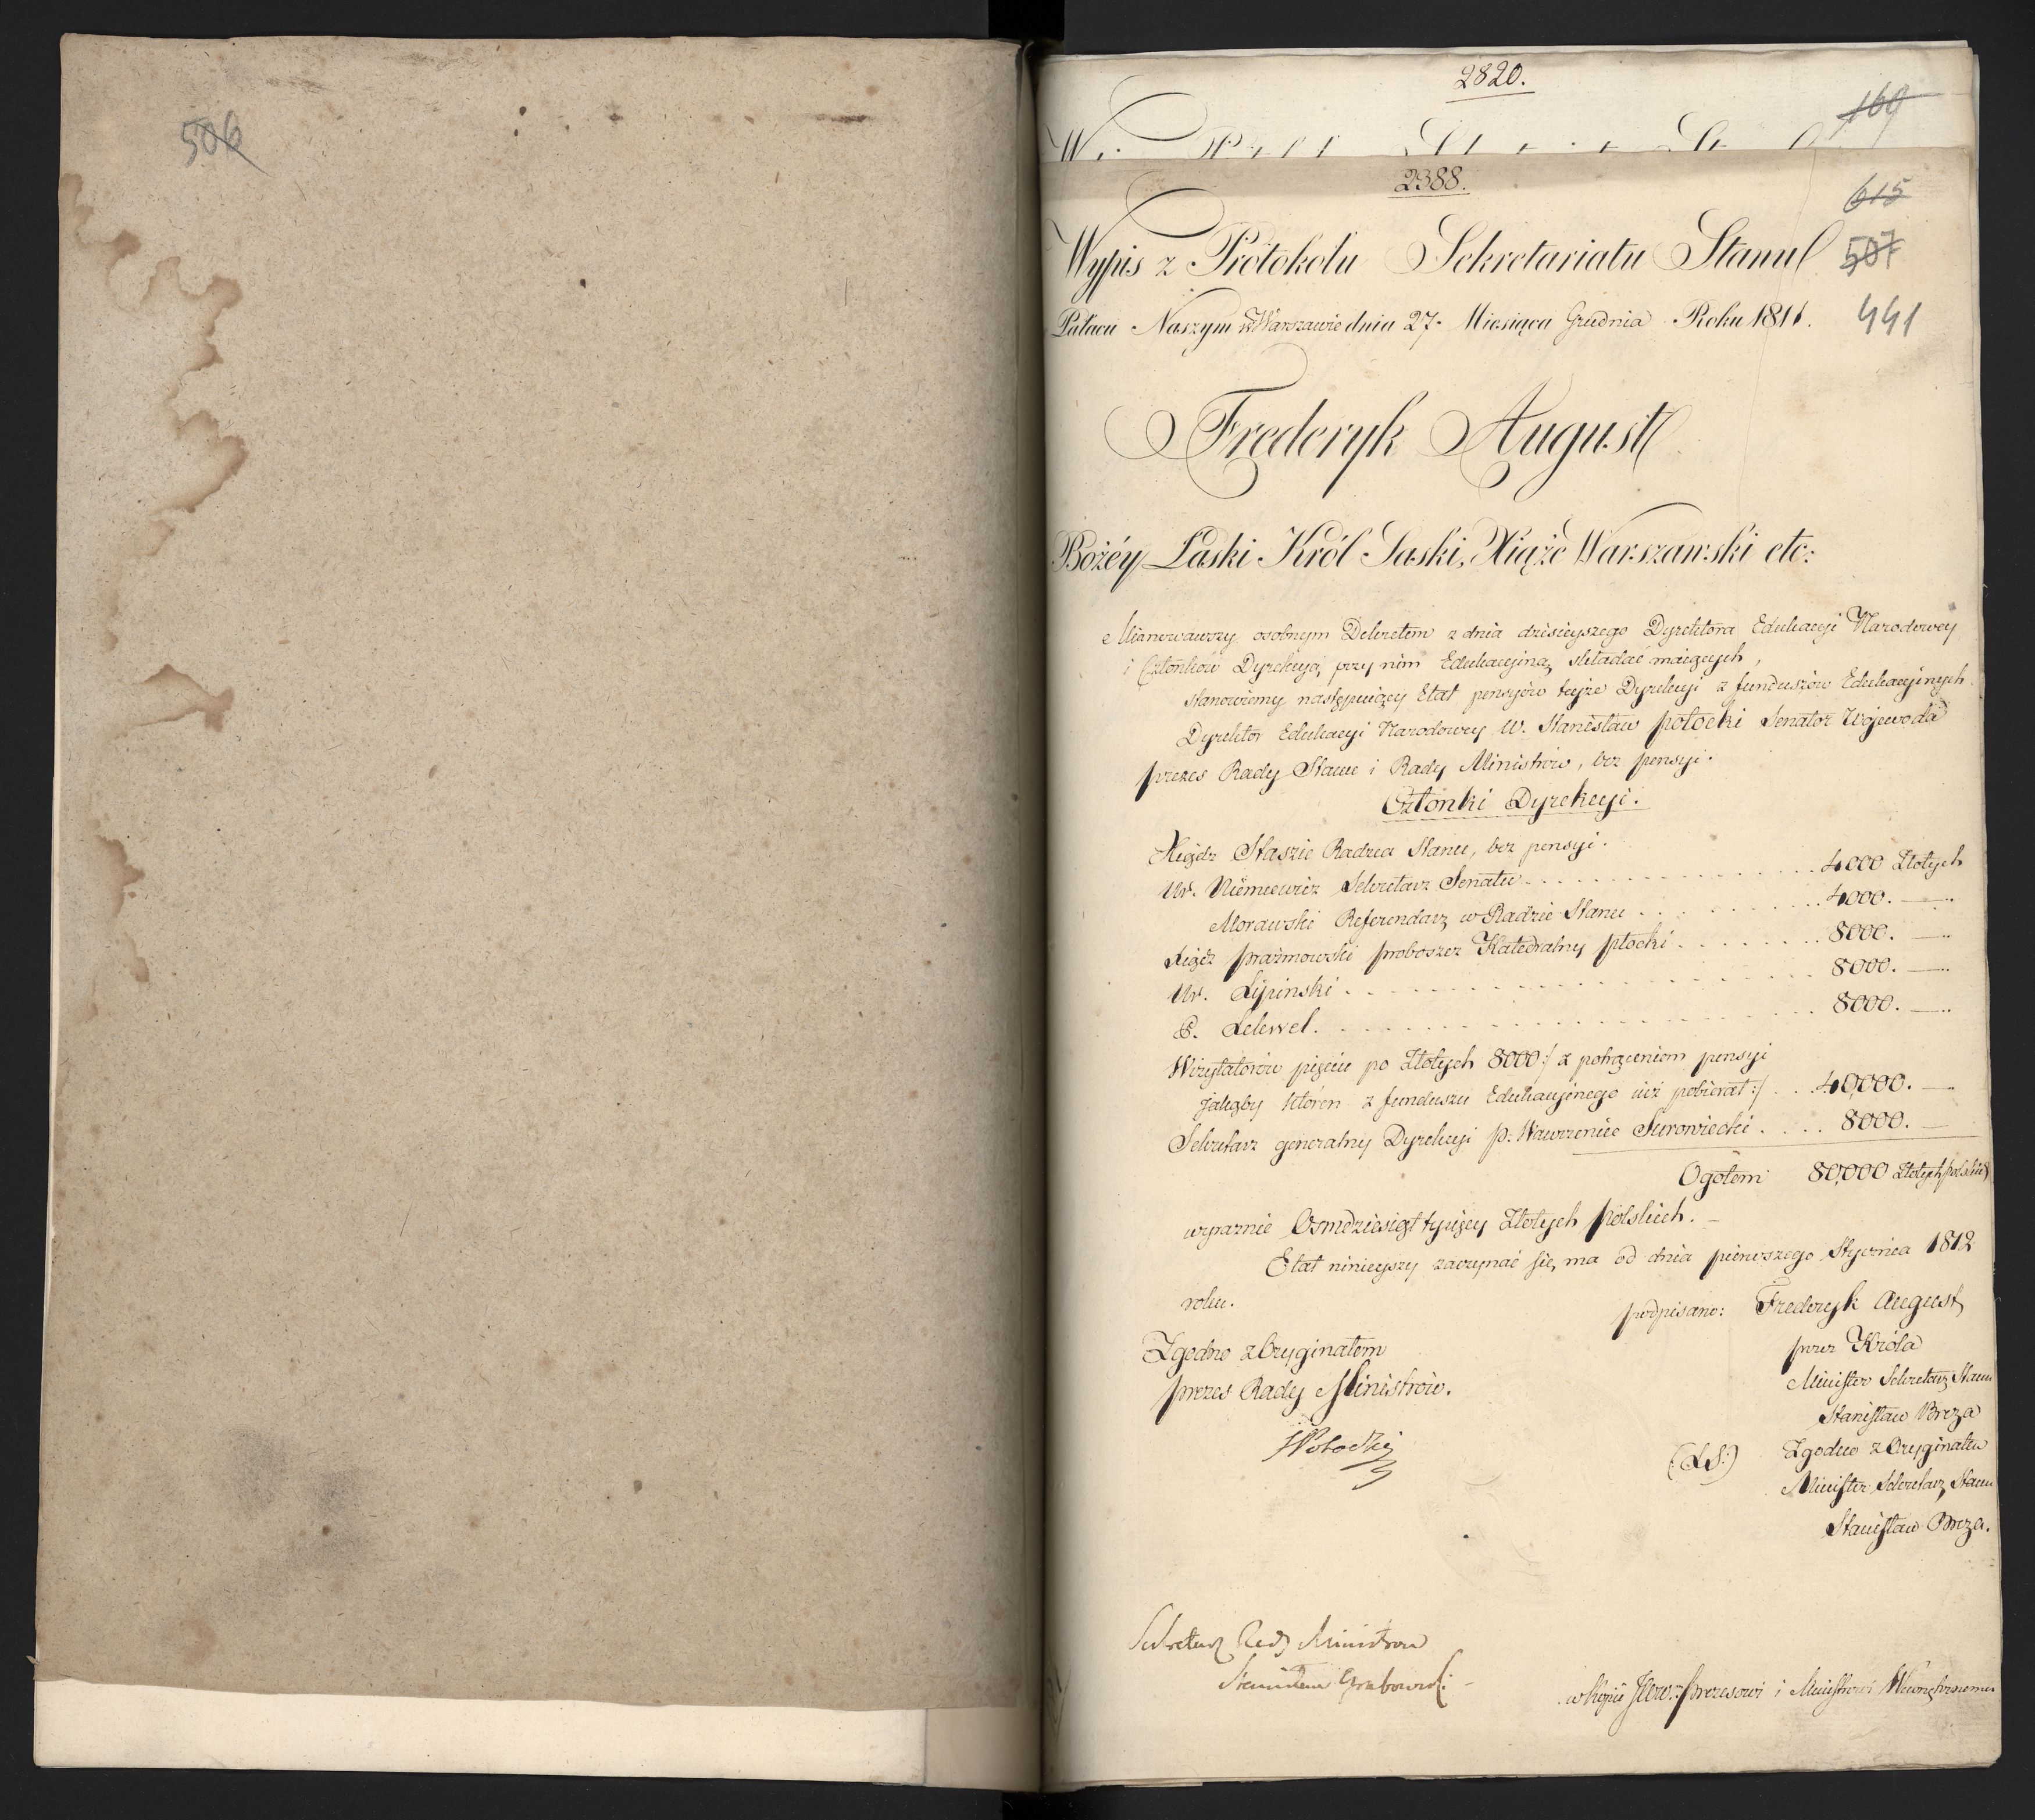 506
2820.
160
2388.
615
Wypis z Protokołu Sekretariatu Stanu
507
Pałacu Naszym w Warszawie dnia 27. Miesiąca Grudnia Roku 1811.
441
Frederyk August
Bożéy Łaski Król Saski, Xiąże Warszawski etc:
Mianowawszy osobnym Dekretem z dnia dzisieyszego Dyrektora Edukacyi Narodowey
i Członków Dyrekcyą przy nim Edukacyiną składać maiących,
stanowiemy następuiący Etat pensyów teyże Dyrekcyi z funduszów Edukacyinych.
Dyrektor Edukacyi Narodowey W. Stanisław Potocki Senator Wojewoda
prezes Rady Stanu i Rady Ministrów, bez pensyi.
Członki Dyrekcyi.
Xiądz Staszic Radzca Stanu, bez pensyi.
Ur. Niemcewicz Sekretarz Senatu 4000 Złotych
Morawski Referendarz w Radzie Stanu 4000.
Xiądz prażmowski proboszcz Katedralny płocki 8000.
Ur. Lipinski 8000.
P. Lelewel. 8000.
Wizytatorów pięciu po Złotych 8000:/ z potrąceniem pensyi
jakąby któren z funduszu Edukacyinego już pobierał:/ 40,000.
Sekretarz generalny Dyrekcyi p. Wawrzeniec Surowiecki 8000.
Ogołem 80,000 Złotych polskich
wyraznie Osmdziesiąt tysięcy Złotych Polskich.
Etat ninieyszy zaczynać się ma od dnia pierwszego Stycznia 1812
roku.
podpisano: Frederyk August
Zgodno z Oryginałem
przez Króla
prezes Rady Ministrów.
Minister Sekretarz Stanu
Stanisław Breza
SPotocki
(LS:) Zgodno z Oryginałem
Minister Sekretarz Stanu
Stanisław Breza.
Sekretarz Rady Ministrów
Stanisław Grabowski
w kopii prezesowi i Ministrowi Wewnętrznemu